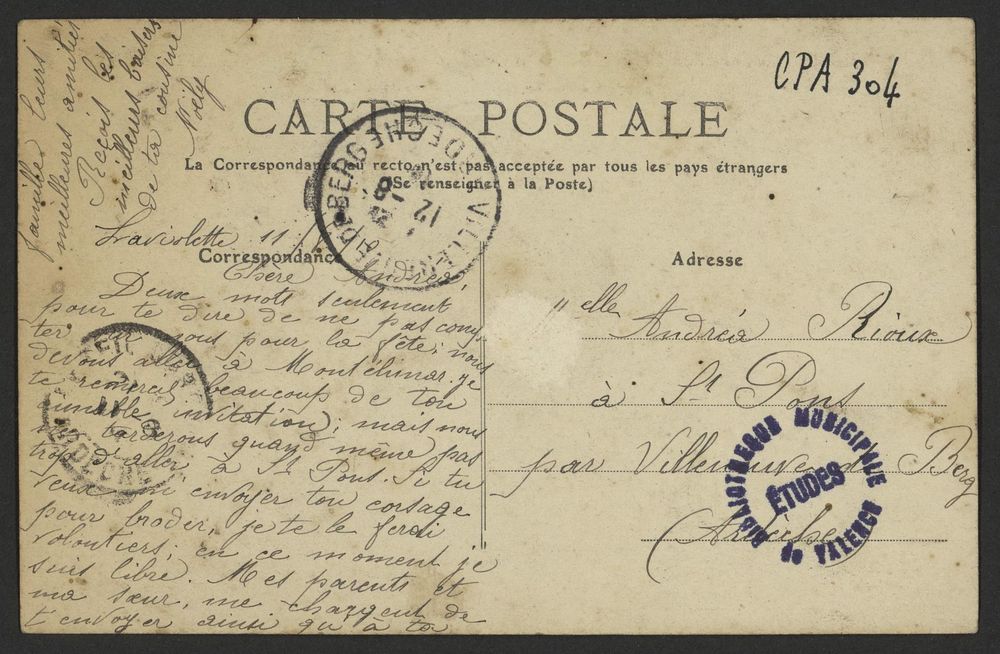 CPA 304
CARTE POSTALE
La Correspondance au recto n'est pas acceptée par tous les pays étrangers
(Se renseigner à la Poste)
Correspondance
Adresse
Laviolette 11
Chère Andréa,
Deux mots seulement
pour te dire de ne pas comp-
ter sur nous pour la fête; nous
devons aller à Montélimar. Je
te remercie beaucoup de ton
aimable invitation; mais nous
ne tarderons quand même pas
trop d'aller à St Pons. Si tu
veux m'envoyer ton corsage
pour broder, je te le ferai
volontiers; en ce moment je
suis libre. Mes parents et
ma sœur, me chargent de
t'envoyer ainsi qu'à ta
famille leurs
meilleures amitiés
Reçois les
meilleurs baisers
de ta cousine
Noély
elle Andréa Rioux
à St Pons
par Villeneuve de Berg
(Ardèche)
VILLENEUVE DE BERG
ARDECHE
12
BIBLIOTHEQUE MUNICIPALE
de VALENCE
ÉTUDES